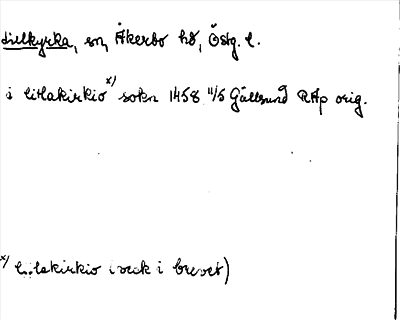 Lillkyrka, sn, Åkerbo hd, Östg. l.
i litlakirkio x) sokn 1458 11/5 Gällsund RAp orig.
x) l..lakirkio i veck i brevet)